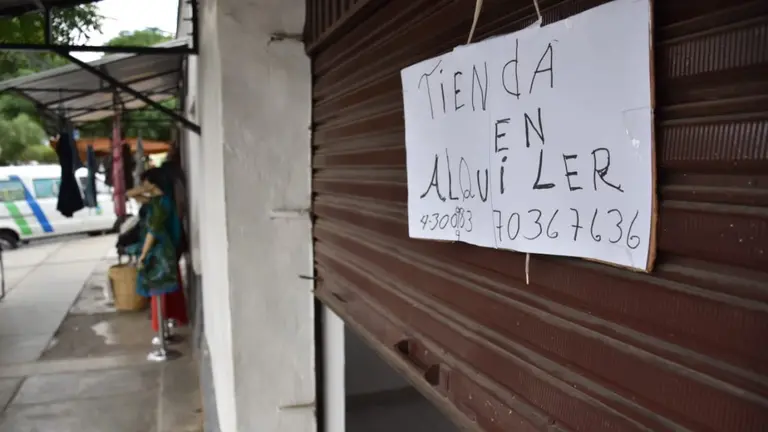 TIENDA
EN
ALQUiLER
70367636